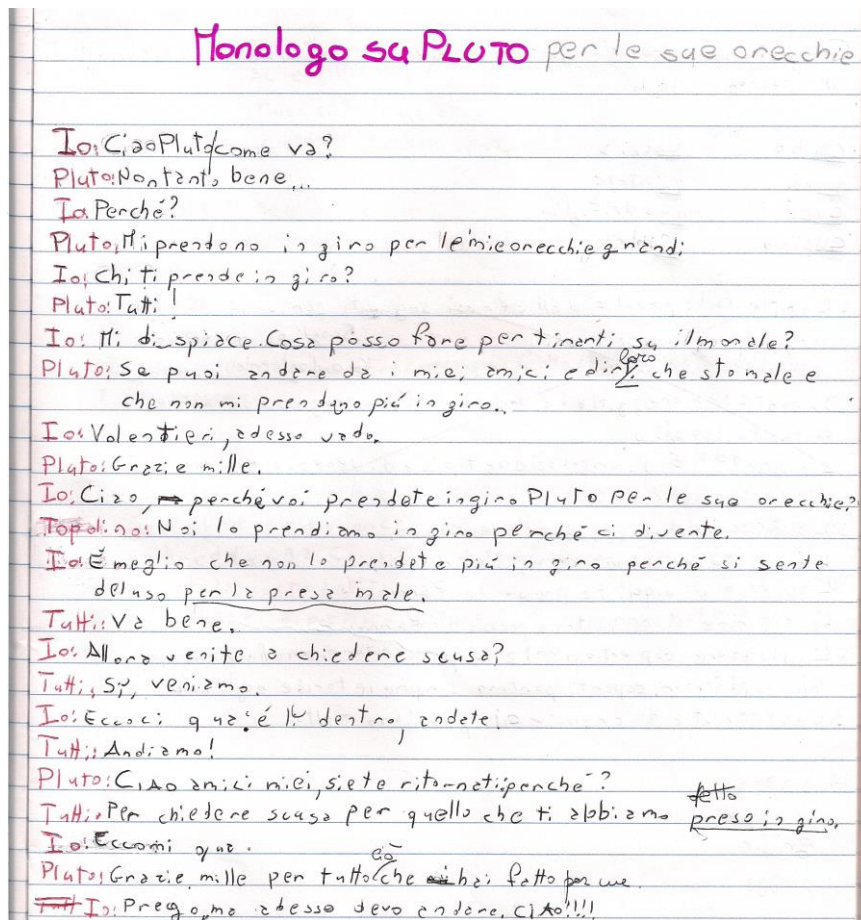 Monologo su PLUTO per le sue orecchie
Io: Ciao Pluto, come va?
Pluto: Non tanto bene...
Io: Perché?
Pluto: Mi prendono in giro per le mie orecchie grandi
Io: Chi ti prende in giro?
Pluto: Tutti!
Io: Mi dispiace. Cosa posso fare per tirarti su il morale?
Pluto: Se puoi andare da i miei amici e dir loro che sto male e
che non mi prendano piú in giro..
Io: Volentieri, adesso vado.
Pluto: Grazie mille.
Io: Ciao, perché voi prendete in giro Pluto per le sue orecchie?
Topolino: Noi lo prendiamo in giro perché ci diverte.
Io: É meglio che non lo prendete piú in giro perché si sente
deluso per la presa male.
Tutti: Va bene.
Io: Allora venite a chiedere scusa?
Tutti: Sí, veniamo.
Io: Eccoci qua: é lí dentro, andate.
Tutti: Andiamo!
Pluto: CIAO amici miei, siete ritornati: perché?
Tutti: Per chiedere scusa per quello che ti abbiamo fatto preso in giro.
Io: Eccomi qua.
Pluto: Grazie mille per tutto ciò che hai fatto per me.
Io: Prego, ma adesso devo andare. CIAO!!!!